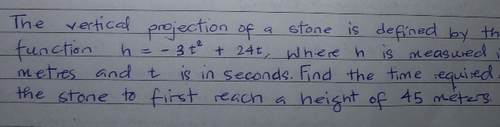 The vertical projection of a stone is defined by th
function h = -3t² + 24t, where h is measured i
metres and t is in seconds. Find the time required
the stone to first reach a height of 45 meters